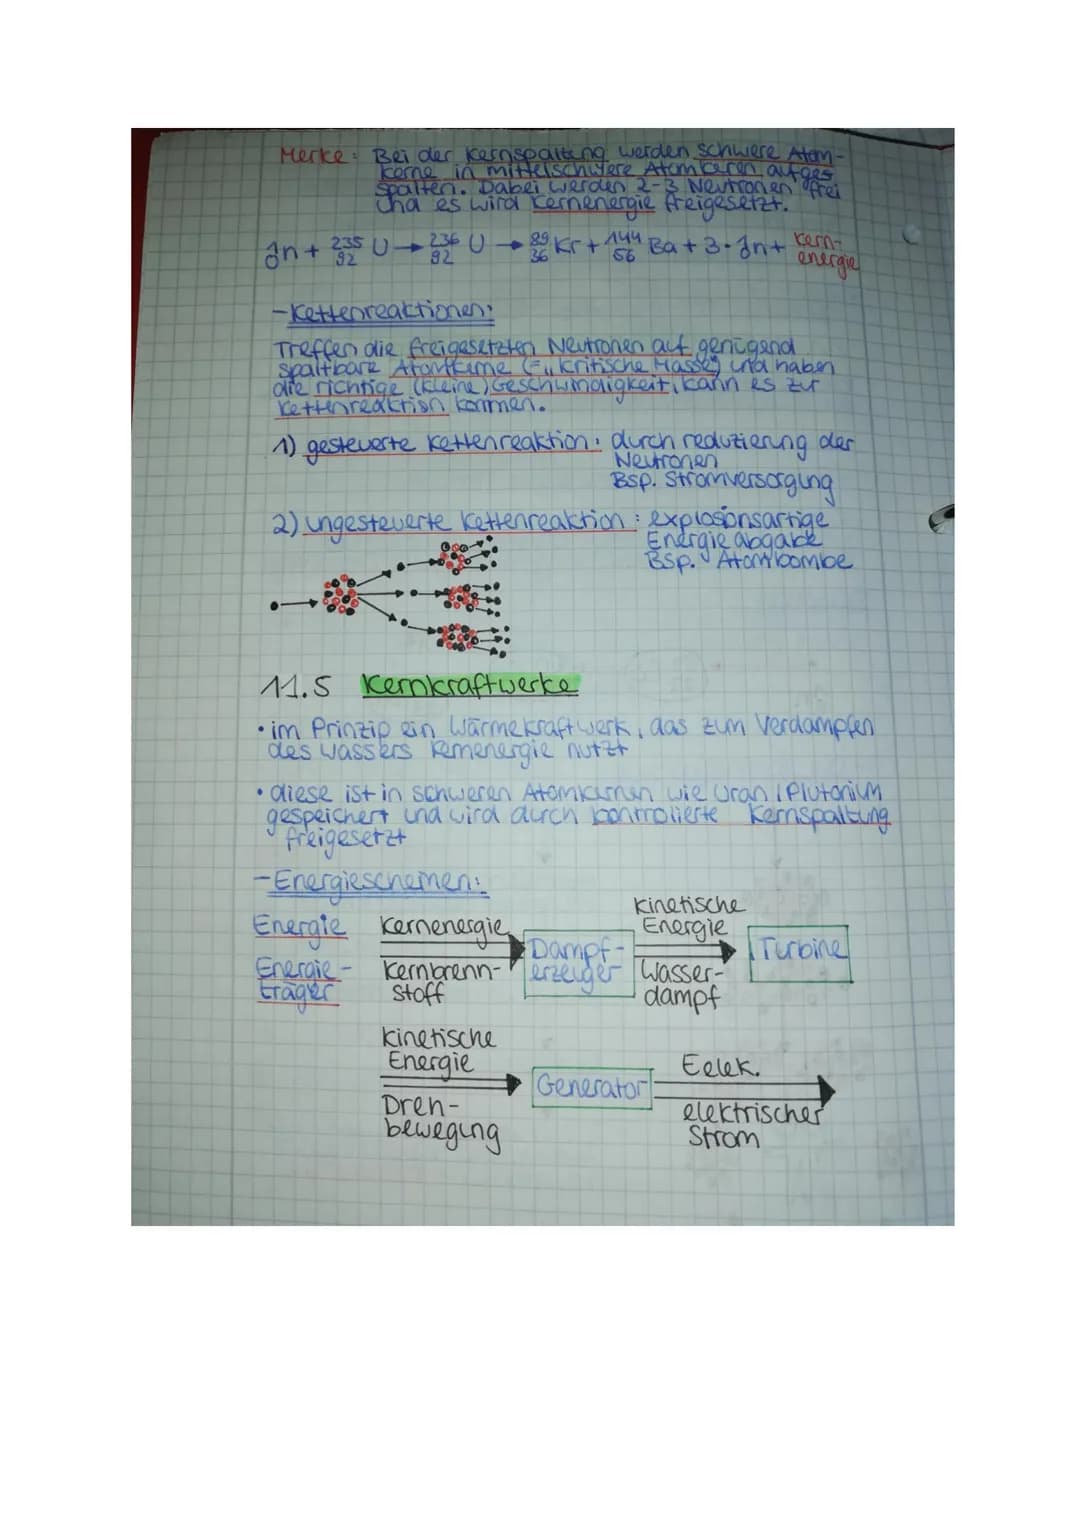 Merke: Bei der Kernspaltung werden schwere Atom-
kerne in mittelschwere Atomkeren aufges
spalten. Dabei werden 2-3 Neutronen frei
und es wird Kernenergie freigesetzt.
¹₀n + ²³⁵₉₂U → ²³⁶₉₂U → ⁸⁹₃₆Kr + ¹⁴⁴₅₆Ba + 3·¹₀n + Kern-
energie
-Kettenreaktionen:
Treffen die freigesetzten Neutronen auf genügend
spaltbare Atomkerne (="kritische Masse") und haben
die richtige (kleine) Geschwindigkeit, kann es zur
Kettenreaktion kommen.
1) gesteuerte Kettenreaktion: durch reduzierung der
Neutronen
Bsp. Stromversorgung
2) ungesteuerte Kettenreaktion: explosionsartige
Energie abgabe
Bsp. Atombombe
11.5 Kernkraftwerke
• im Prinzip ein Wärmekraftwerk, das zum Verdampfen
des wassers Kernenergie nutzt
• diese ist in schweren Atomkernen wie Uran / Plutonium
gespeichert und wird durch kontrollierte Kernspaltung
freigesetzt
-Energieschemen:
Energie Kernenergie kinetische Energie
Dampf-erzeuger Turbine
Energie-träger Kernbrenn-stoff Wasser-dampf
kinetische
Energie Eelek.
Generator
Dreh- elektrischer
bewegung Strom